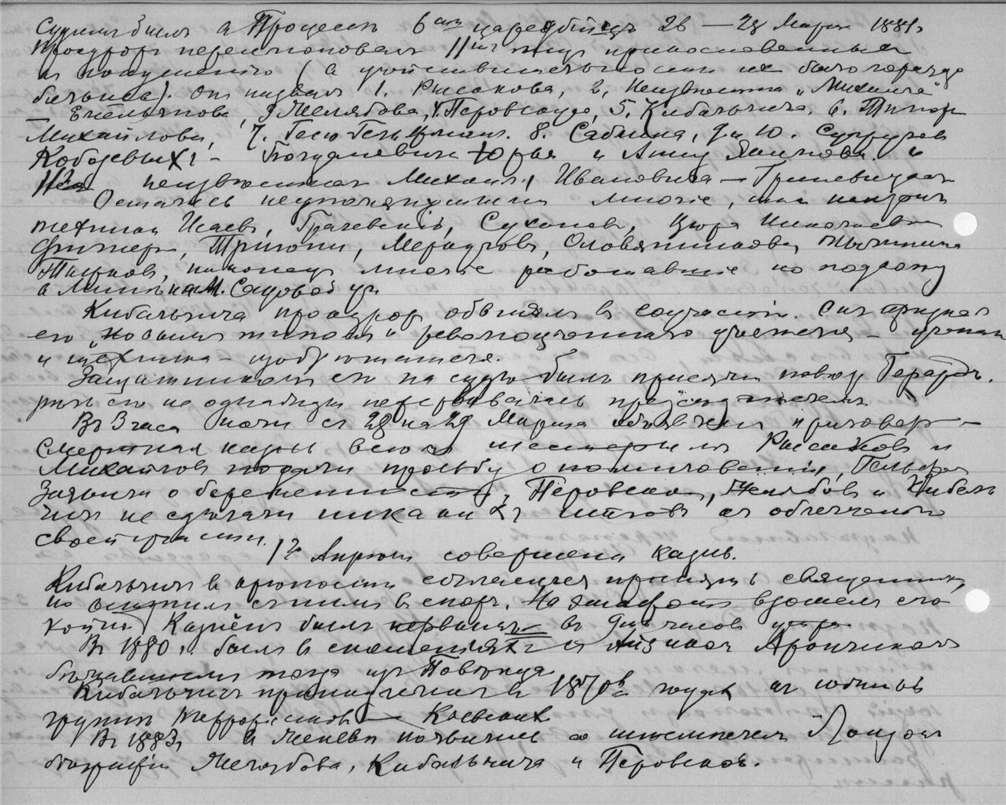 Судим был в Процесс 6ти цареубийц 26 — 28 Марта 1881г.
Прокурор перечислил 11ть лиц прикосновенных
к покушению (в действительности их было гораздо
больше). Он назвал 1. Рысакова, 2. Неизвестна „Михаила"
Емельянова, 3 Желябова, 4. Перовскую, 5. Кибальчича. 6. Тимоф
Михайлова, 7. Гесю Гельфман. 8. Саблина, 9 и 10. Супругов
Кобозевых — Богданович Юрья и Анну Якимову и
неизвестная Михаил Ивановича — Гриневицкая
Остались многие,
техник Исаев, Грачевский, Суханов, Вера Николаевна
Фигнер, Тригони, Меркулов, Тычинина
Тырков, наконец многие работавшие по подкопу
в М. Садовой ул.
Кибальчича прокурор обвинял в соучастии. Сам признал
его „новым типом" революционного деятеля —
и техника — изобретателя.
Защитником его на суде был присяжн повер Герард.
речь его не однажды прерывалась председателем
В 3 часа ночи с 28 на 29 Марта объявлен приговор —
смертная казнь всем шестерым Рысаков и
Михайлов подали просьбу о помиловании, Гельфман
Заявила о беременности, Перовская, Желябов и Кибаль
чич не сделали никаких шагов к облегчению
своей участи.
1го Апреля совершена казнь.
Кибальчич в крепости согласился принять священника,
но вступил с ним в спор. На эшафот взошел
Казнён был первым в 9 часов утра.
В 1880г. был в сношениях с Айзиком Арончиком
бежавшим тогда из
Кибальчич принадлежал в 1870х годах к южной
группе террористов — Киевских
В 1883г. в Женеве появились
биографии Желябова, Кибальчича и Перовской.